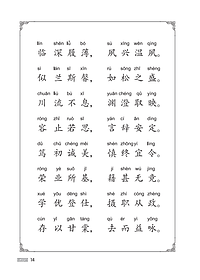 lín shēn lǚ bó sù xīng wēn qìng
临深履薄，夙兴温凊。
sì lán sī xīn rú sōng zhī shèng
似兰斯馨，如松之盛。
chuān liú bù xī yuān chéng qǔ yìng
川流不息，渊澄取映。
róng zhǐ ruò sī yán cí ān dìng
容止若思，言辞安定。
dǔ chū chéng měi shèn zhōng yí lìng
笃初诚美，慎终宜令。
róng yè suǒ jī jí shèn wú jìng
荣业所基，籍甚无竟。
xué yōu dēng shì shè zhí cóng zhèng
学优登仕，摄职从政。
cún yǐ gān táng qù ér yì yǒng
存以甘棠，去而益咏。
14